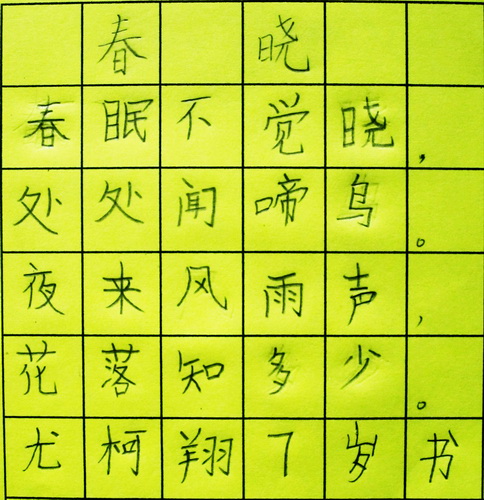 春晓
春眠不觉晓，
处处闻啼鸟。
夜来风雨声，
花落知多少。
尤柯翔7岁书